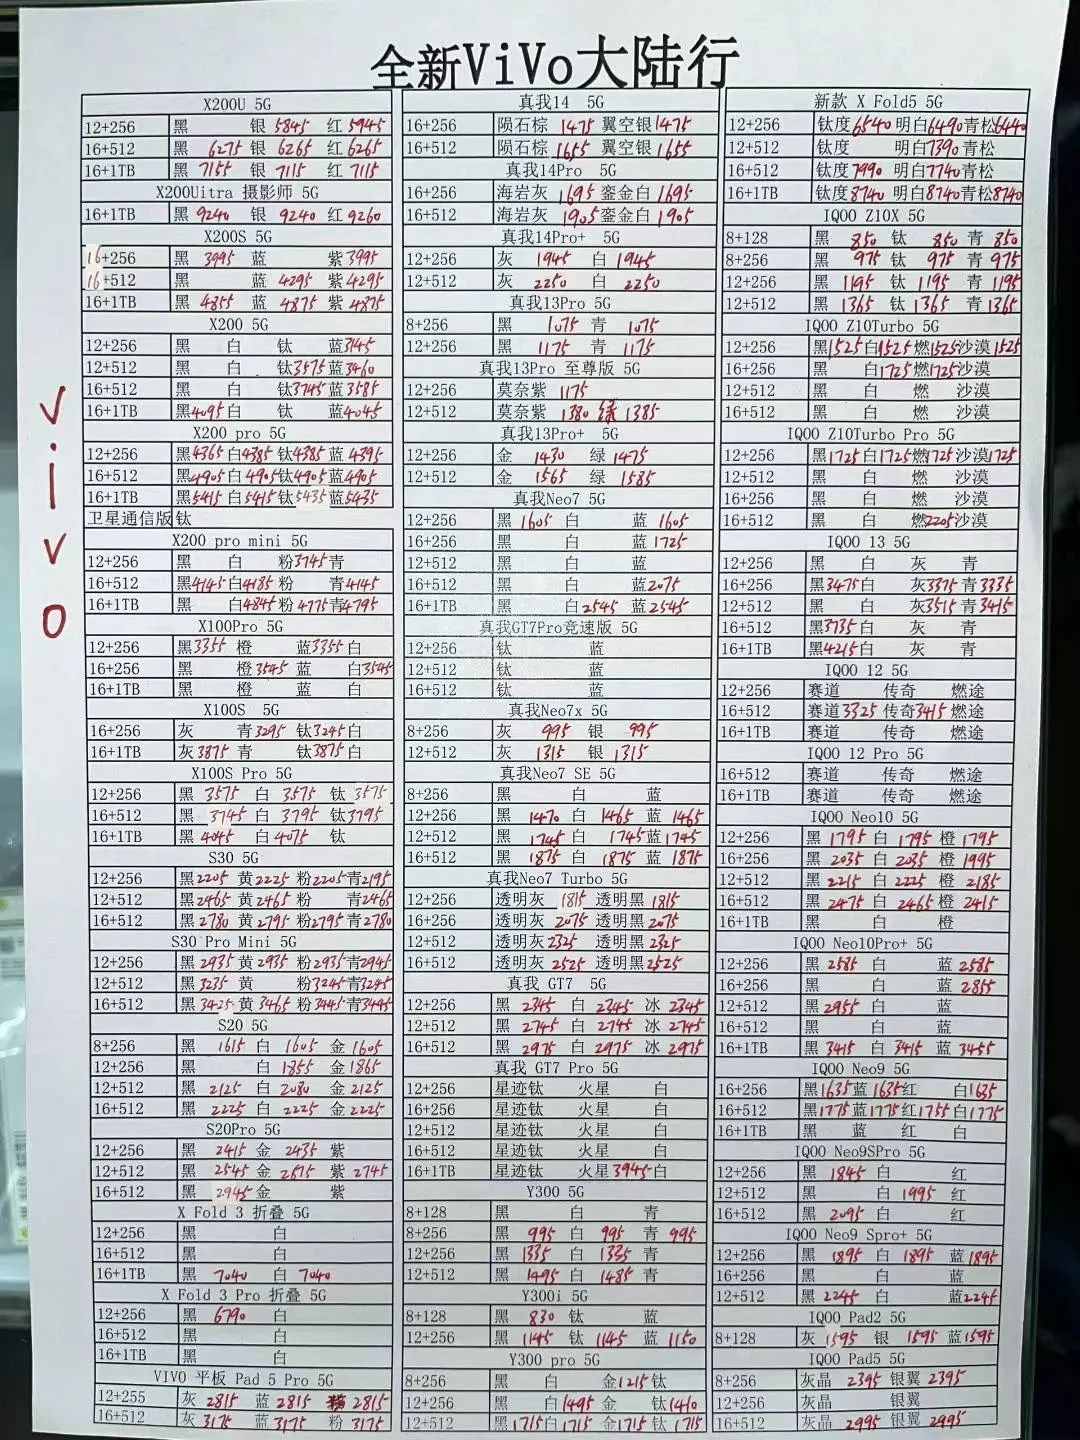 全新ViVo大陆行
vivo
X200U 5G
12+256 黑 银 5845 红 5945
16+512 黑 6275 银 6265 红 6265
16+1TB 黑 7155 银 7115 红 7115
X200Uitra 摄影师 5G
16+1TB 黑 9240 银 9240 红 9260
X200S 5G
16+256 黑 3995 蓝 紫 3995
16+512 黑 蓝 4295 紫 4295
16+1TB 黑 4855 蓝 4875 紫 4875
X200 5G
12+256 黑 白 钛 蓝 3145
12+512 黑 白 钛 3575 蓝 3460
16+512 黑 白 钛 3745 蓝 3585
16+1TB 黑 4095 白 钛 蓝 4045
X200 pro 5G
12+256 黑 4365 白 4385 钛 4385 蓝 4395
16+512 黑 4905 白 4905 钛 4905 蓝 4905
16+1TB 黑 5415 白 5415 钛 5435 蓝 5435
卫星通信版 钛
X200 pro mini 5G
12+256 黑 白 粉 3745 青
16+512 黑 4145 白 4185 粉 青 4145
16+1TB 黑 白 4845 粉 4775 青 4795
X100Pro 5G
12+256 黑 3355 橙 蓝 3355 白
16+256 黑 橙 3545 蓝 白 3545
16+1TB 黑 橙 蓝 白
X100S 5G
16+256 灰 青 3295 钛 3245 白
16+1TB 灰 3875 青 钛 3875 白
X100S Pro 5G
12+256 黑 3575 白 3575 钛 3575
16+512 黑 3745 白 3795 钛 3795
16+1TB 黑 4045 白 4075 钛
S30 5G
12+256 黑 2205 黄 2225 粉 2205 青 2195
12+512 黑 2465 黄 2465 粉 青 2465
16+512 黑 2780 黄 2795 粉 2795 青 2780
S30 Pro Mini 5G
12+256 黑 2935 黄 2935 粉 2935 青 2945
12+512 黑 3235 黄 粉 3245 青 3245
16+512 黑 3425 黄 3465 粉 3445 青 3445
S20 5G
8+256 黑 1615 白 1605 金 1605
12+256 黑 白 1855 金 1865
12+512 黑 2125 白 2080 金 2125
16+512 黑 2225 白 2225 金 2225
S20Pro 5G
12+256 黑 2415 金 2435 紫
12+512 黑 2545 金 2615 紫 2745
16+512 黑 2945 金 紫
X Fold 3 折叠 5G
12+256 黑 白
16+512 黑 白
16+1TB 黑 7040 白 7040
X Fold 3 Pro 折叠 5G
12+256 黑 6790 白
16+512 黑 白
16+1TB 黑 白
VIVO 平板 Pad 5 Pro 5G
12+255 灰 2815 蓝 2815 2815
16+512 灰 3175 蓝 3175 粉 3175
真我14 5G
16+256 陨石棕 1475 翼空银 1475
16+512 陨石棕 1655 翼空银 1655
真我14Pro 5G
16+256 海岩灰 1695 銮金白 1695
16+512 海岩灰 1905 銮金白 1905
真我14Pro+ 5G
12+256 灰 1945 白 1945
12+512 灰 2250 白 2250
真我13Pro 5G
8+256 黑 1075 青 1075
12+256 黑 1175 青 1175
真我13Pro 至尊版 5G
12+256 莫奈紫 1175
12+512 莫奈紫 1380 绿 1385
真我13Pro+ 5G
12+256 金 1430 绿 1475
12+512 金 1565 绿 1585
真我Neo7 5G
12+256 黑 1605 白 蓝 1605
16+256 黑 白 蓝 1725
12+512 黑 白 蓝
16+512 黑 白 蓝 2075
16+1TB 黑 白 2545 蓝 2545
真我GT7Pro竞速版 5G
12+256 钛 蓝
12+512 钛 蓝
16+512 钛 蓝
真我Neo7x 5G
8+256 灰 995 银 995
12+512 灰 1315 银 1315
真我Neo7 SE 5G
8+256 黑 白 蓝
12+256 黑 1470 白 1465 蓝 1465
12+512 黑 1745 白 1745 蓝 1745
16+512 黑 1875 白 1875 蓝 1875
真我Neo7 Turbo 5G
12+256 透明灰 1815 透明黑 1815
16+256 透明灰 2075 透明黑 2075
12+512 透明灰 2325 透明黑 2325
16+512 透明灰 2525 透明黑 2525
真我 GT7 5G
12+256 黑 2345 白 2345 冰 2345
12+512 黑 2745 白 2745 冰 2745
16+512 黑 2975 白 2975 冰 2975
真我 GT7 Pro 5G
12+256 星迹钛 火星 白
16+256 星迹钛 火星 白
12+512 星迹钛 火星 白
16+512 星迹钛 火星 白
16+1TB 星迹钛 火星 3945 白
Y300 5G
8+128 黑 白 青
8+256 黑 995 白 995 青 995
12+256 黑 1335 白 1335 青
12+512 黑 1495 白 1485 青
Y300i 5G
8+128 黑 830 钛 蓝
12+256 黑 1145 钛 1145 蓝 1150
Y300 pro 5G
8+256 黑 白 金 1215 钛
12+256 黑 白 1495 金 钛 1410
12+512 黑 1715 白 1715 金 1715 钛 1715
新款 X Fold5 5G
12+256 钛度 6540 明白 6490 青松 6440
12+512 钛度 明白 7390 青松
16+512 钛度 7990 明白 7740 青松
16+1TB 钛度 8740 明白 8740 青松 8740
IQOO Z10X 5G
8+128 黑 850 钛 850 青 850
8+256 黑 975 钛 975 青 975
12+256 黑 1195 钛 1195 青 1195
12+512 黑 1365 钛 1365 青 1365
IQOO Z10Turbo 5G
12+256 黑 1525 白 1525 燃 1525 沙漠 1525
16+256 黑 白 1725 燃 1725 沙漠
12+512 黑 白 燃 沙漠
16+512 黑 白 燃 沙漠
IQOO Z10Turbo Pro 5G
12+256 黑 1725 白 1725 燃 1725 沙漠 1725
12+512 黑 白 燃 沙漠
16+256 黑 白 燃 沙漠
16+512 黑 白 燃 2205 沙漠
IQOO 13 5G
12+256 黑 白 灰 青
16+256 黑 3475 白 灰 3375 青 3335
12+512 黑 白 灰 3515 青 3415
16+512 黑 3735 白 灰 青
16+1TB 黑 4215 白 灰 青
IQOO 12 5G
12+256 赛道 传奇 燃途
16+512 赛道 3325 传奇 3415 燃途
16+1TB 赛道 传奇 燃途
IQOO 12 Pro 5G
16+512 赛道 传奇 燃途
16+1TB 赛道 传奇 燃途
IQOO Neo10 5G
12+256 黑 1795 白 1795 橙 1795
16+256 黑 2035 白 2035 橙 1995
12+512 黑 2215 白 2225 橙 2185
16+512 黑 2475 白 2465 橙 2415
16+1TB 黑 白 橙
IQOO Neo10Pro+ 5G
12+256 黑 2585 白 蓝 2585
16+256 黑 白 蓝 2855
12+512 黑 2955 白 蓝
16+512 黑 白 蓝
16+1TB 黑 3415 白 3415 蓝 3455
IQOO Neo9 5G
16+256 黑 1635 蓝 1635 红 白 1635
16+512 黑 1775 蓝 1775 红 1755 白 1775
16+1TB 黑 蓝 红 白
IQOO Neo9SPro 5G
12+256 黑 1845 白 红
12+512 黑 白 1995 红
16+512 黑 2095 白 红
IQOO Neo9 Spro+ 5G
12+256 黑 1895 白 1895 蓝 1895
16+256 黑 白 蓝
12+512 黑 2245 白 蓝 2245
IQOO Pad2 5G
8+128 灰 1595 银 1595 蓝 1595
IQOO Pad5 5G
8+256 灰晶 2395 银翼 2395
12+256 灰晶 银翼
16+512 灰晶 2995 银翼 2995